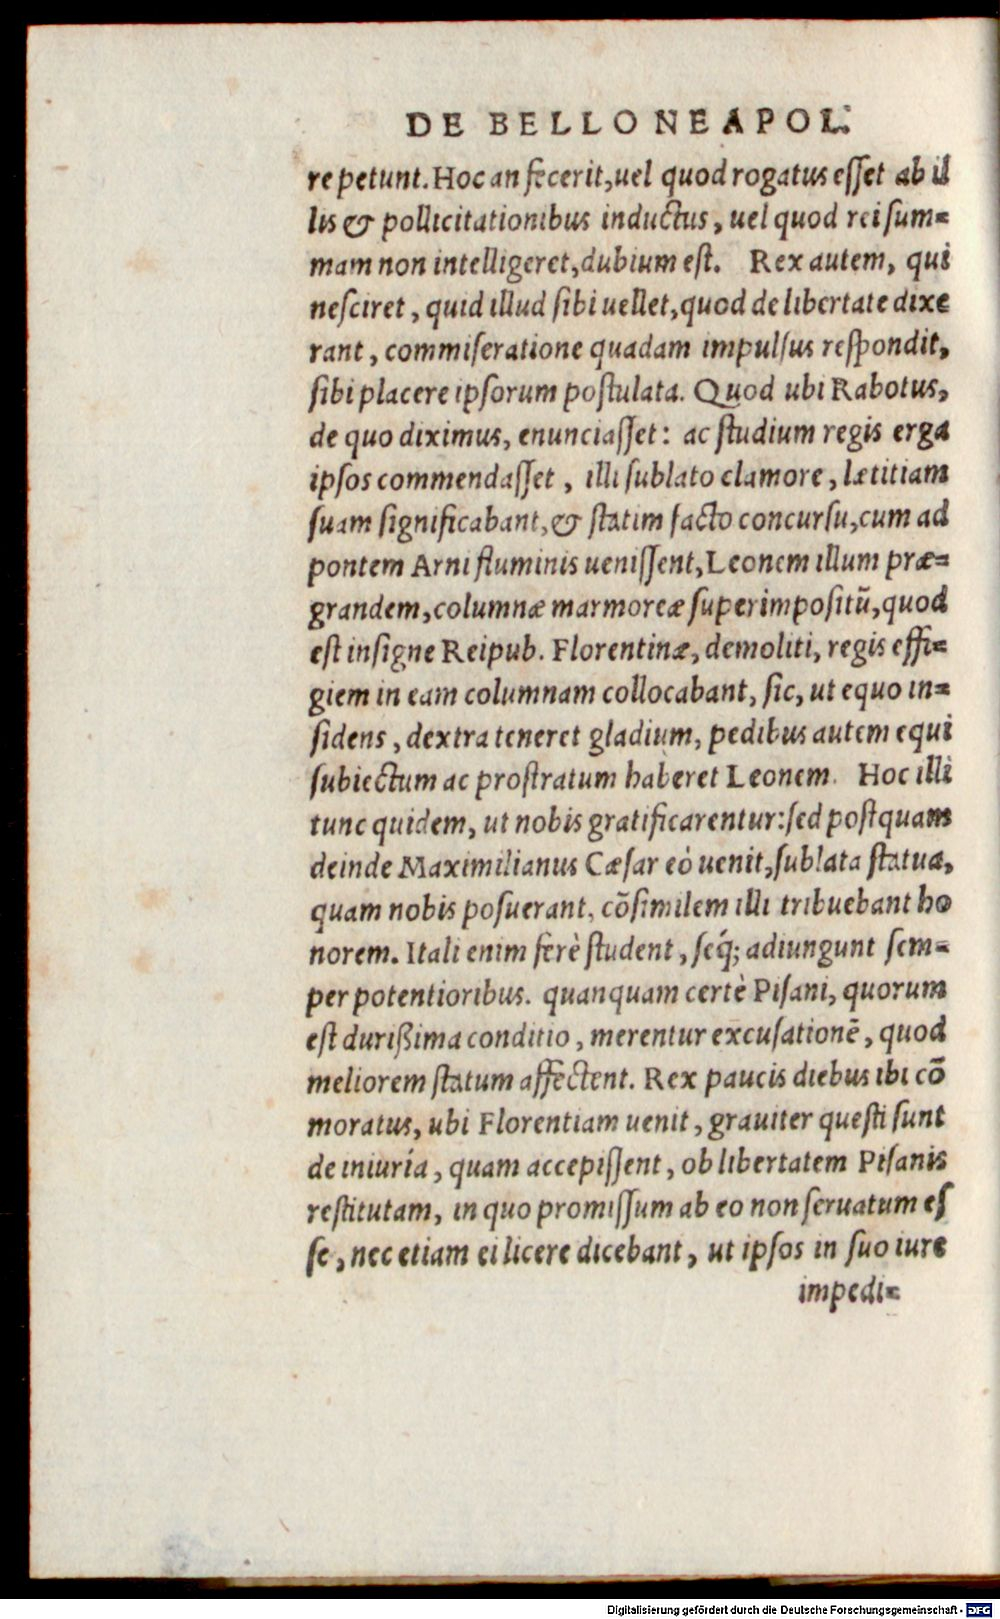 DE BELLO NEAPOL.
repetunt. Hoc an fecerit, uel quod rogatus esset ab il
lis & pollicitationibus inductus, uel quod rei sum=
mam non intelligeret, dubium est. Rex autem, qui
nesciret, quid illud sibi uellet, quod de libertate dixe
rant, commiseratione quadam impulsus respondit,
sibi placere ipsorum postulata. Quod ubi Rabotus,
de quo diximus, enunciasset: ac studium regis erga
ipsos commendasset, illi sublato clamore, lætitiam
suam significabant, & statim facto concursu, cum ad
pontem Arni fluminis uenissent, Leonem illum præ=
grandem, columnæ marmoreæ superimpositũ, quod
est insigne Reipub. Florentinæ, demoliti, regis effi=
giem in eam columnam collocabant, sic, ut equo in=
sidens, dextra teneret gladium, pedibus autem equi
subiectum ac prostratum haberet Leonem. Hoc illi
tunc quidem, ut nobis gratificarentur: sed postquam
deinde Maximilianus Cæsar eò uenit, sublata statua,
quam nobis posuerant, cõsimilem illi tribuebant ho
norem. Itali enim ferè student, seq́; adiungunt sem=
per potentioribus. quanquam certè Pisani, quorum
est durißima conditio, merentur excusationẽ, quod
meliorem statum affectent. Rex paucis diebus ibi cõ
moratus, ubi Florentiam uenit, grauiter questi sunt
de iniuría, quam accepissent, ob libertatem Pisanis
restitutam, in quo promissum ab eo non seruatum es
se, nec etiam ei licere dicebant, ut ipsos in suo iure
impedi=
Digitalisierung gefördert durch die Deutsche Forschungsgemeinschaft - DFG